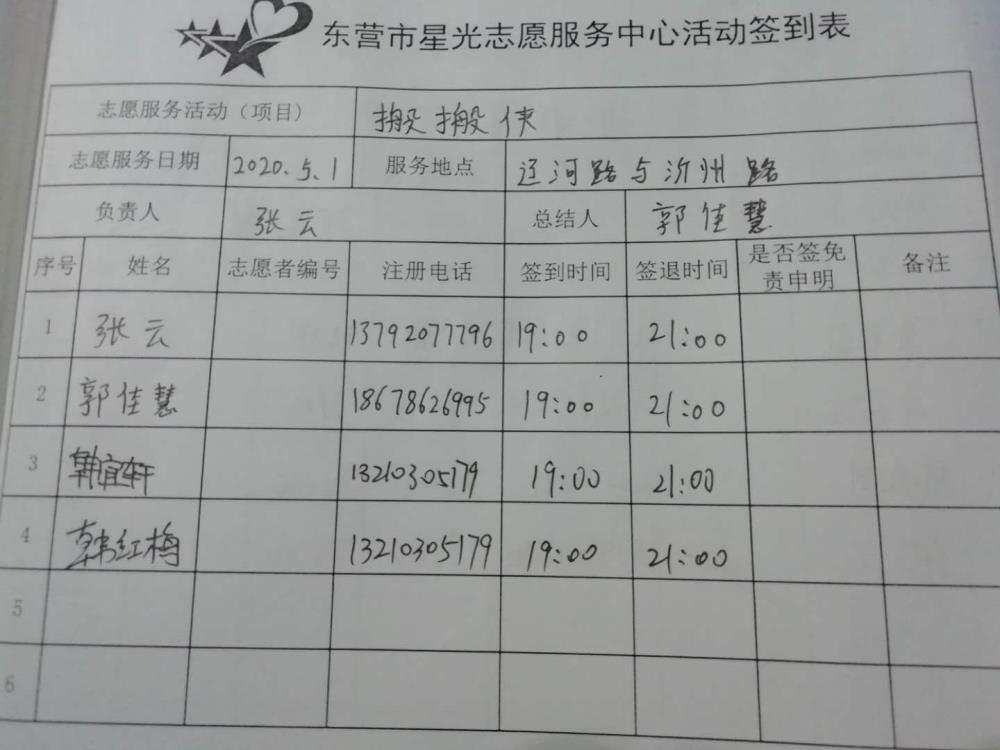 东营市星光志愿服务中心活动签到表
志愿服务活动（项目） 搬搬侠
志愿服务日期 2020.5.1 服务地点 辽河路与沂州路
负责人 张云 总结人 郭佳慧
序号 姓名 志愿者编号 注册电话 签到时间 签退时间 是否签免责申明 备注
1 张云 13792077796 19:00 21:00
2 郭佳慧 18678626995 19:00 21:00
3 韩宜轩 13210305179 19:00 21:00
4 韩红梅 13210305179 19:00 21:00
5
6